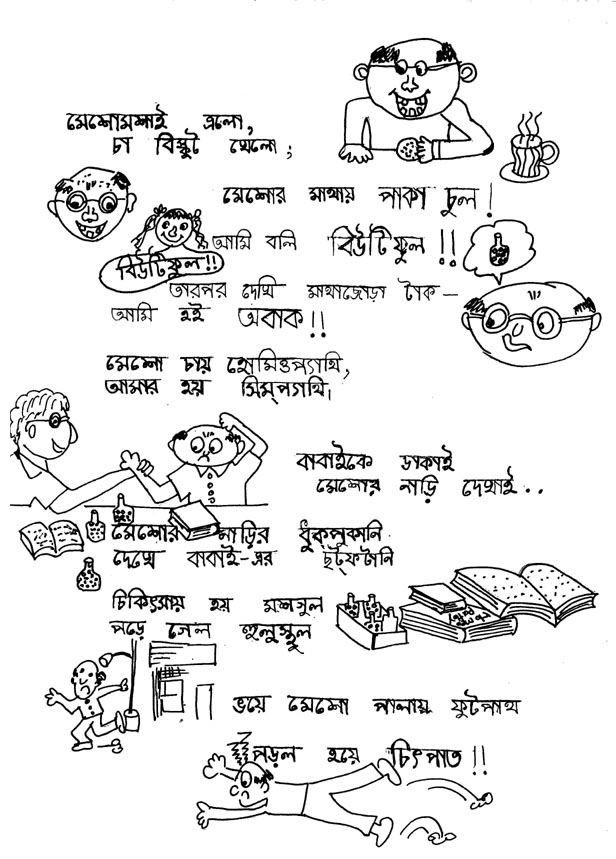 মেশোমশাই এলো,
চা বিস্কুট খেলো;
মেশোর মাথায় পাকা চুল!
আমি বলি বিউটিফুল!!
বিউটিফুল!!
তারপর দেখি মাথাজোড়া টাক—
আমি হই অবাক!!
মেশো চায় হোমিওপ্যাথি,
আমার হয় সিম্প্যাথি।
বাবাইকে ডাকাই
মেশোর নাড়ি দেখাই..
মেশোর নাড়ির ধুকপুকানি
দেখে বাবাই-এর ছট্ফটানি
চিকিৎসায় হয় মশগুল
পড়ে গেল হুলুস্থুল
ভয়ে মেশো পালায় ফুটপাথ
পড়ল হয়ে চিৎপাত!!